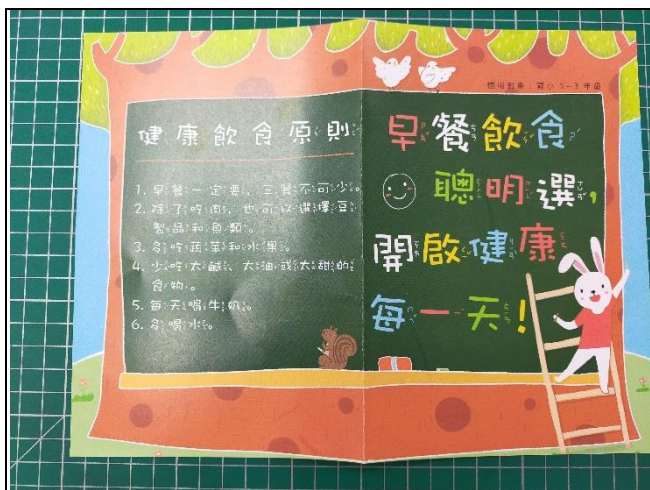 健康飲食原則
1. 早餐一定要，三餐不可少。
2. 除了吃肉，也可以選擇豆
製品和魚類。
3. 多吃蔬菜和水果。
4. 少吃太鹹、太油或太甜的
食物。
5. 每天喝牛奶。
6. 多喝水。
適用對象：國小 1-3 年級
早餐飲食
聰明選，
開啟健康
每一天！